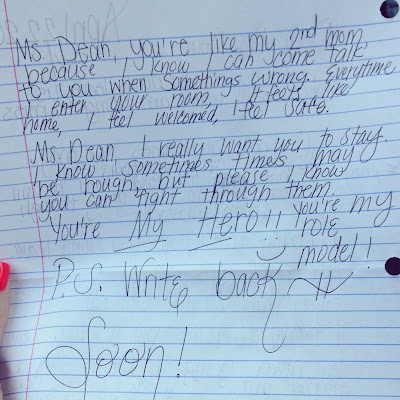 Ms. Dean, you're like my 2nd mom
because I know I can come talk
to you when somethings wrong. Everytime
I enter your room, it feels like
home, I feel welcomed, I feel safe.
Ms. Dean, I really want you to stay.
I know sometimes times may
be rough, but please I know
you can fight through them.
You're My Hero!! You're my
role
model!
P.S. Write back
Soon!